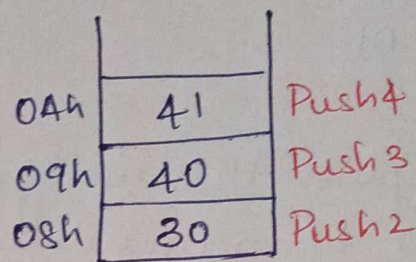 04h 41 Push4
09h 40 Push 3
08h 30 Push 2